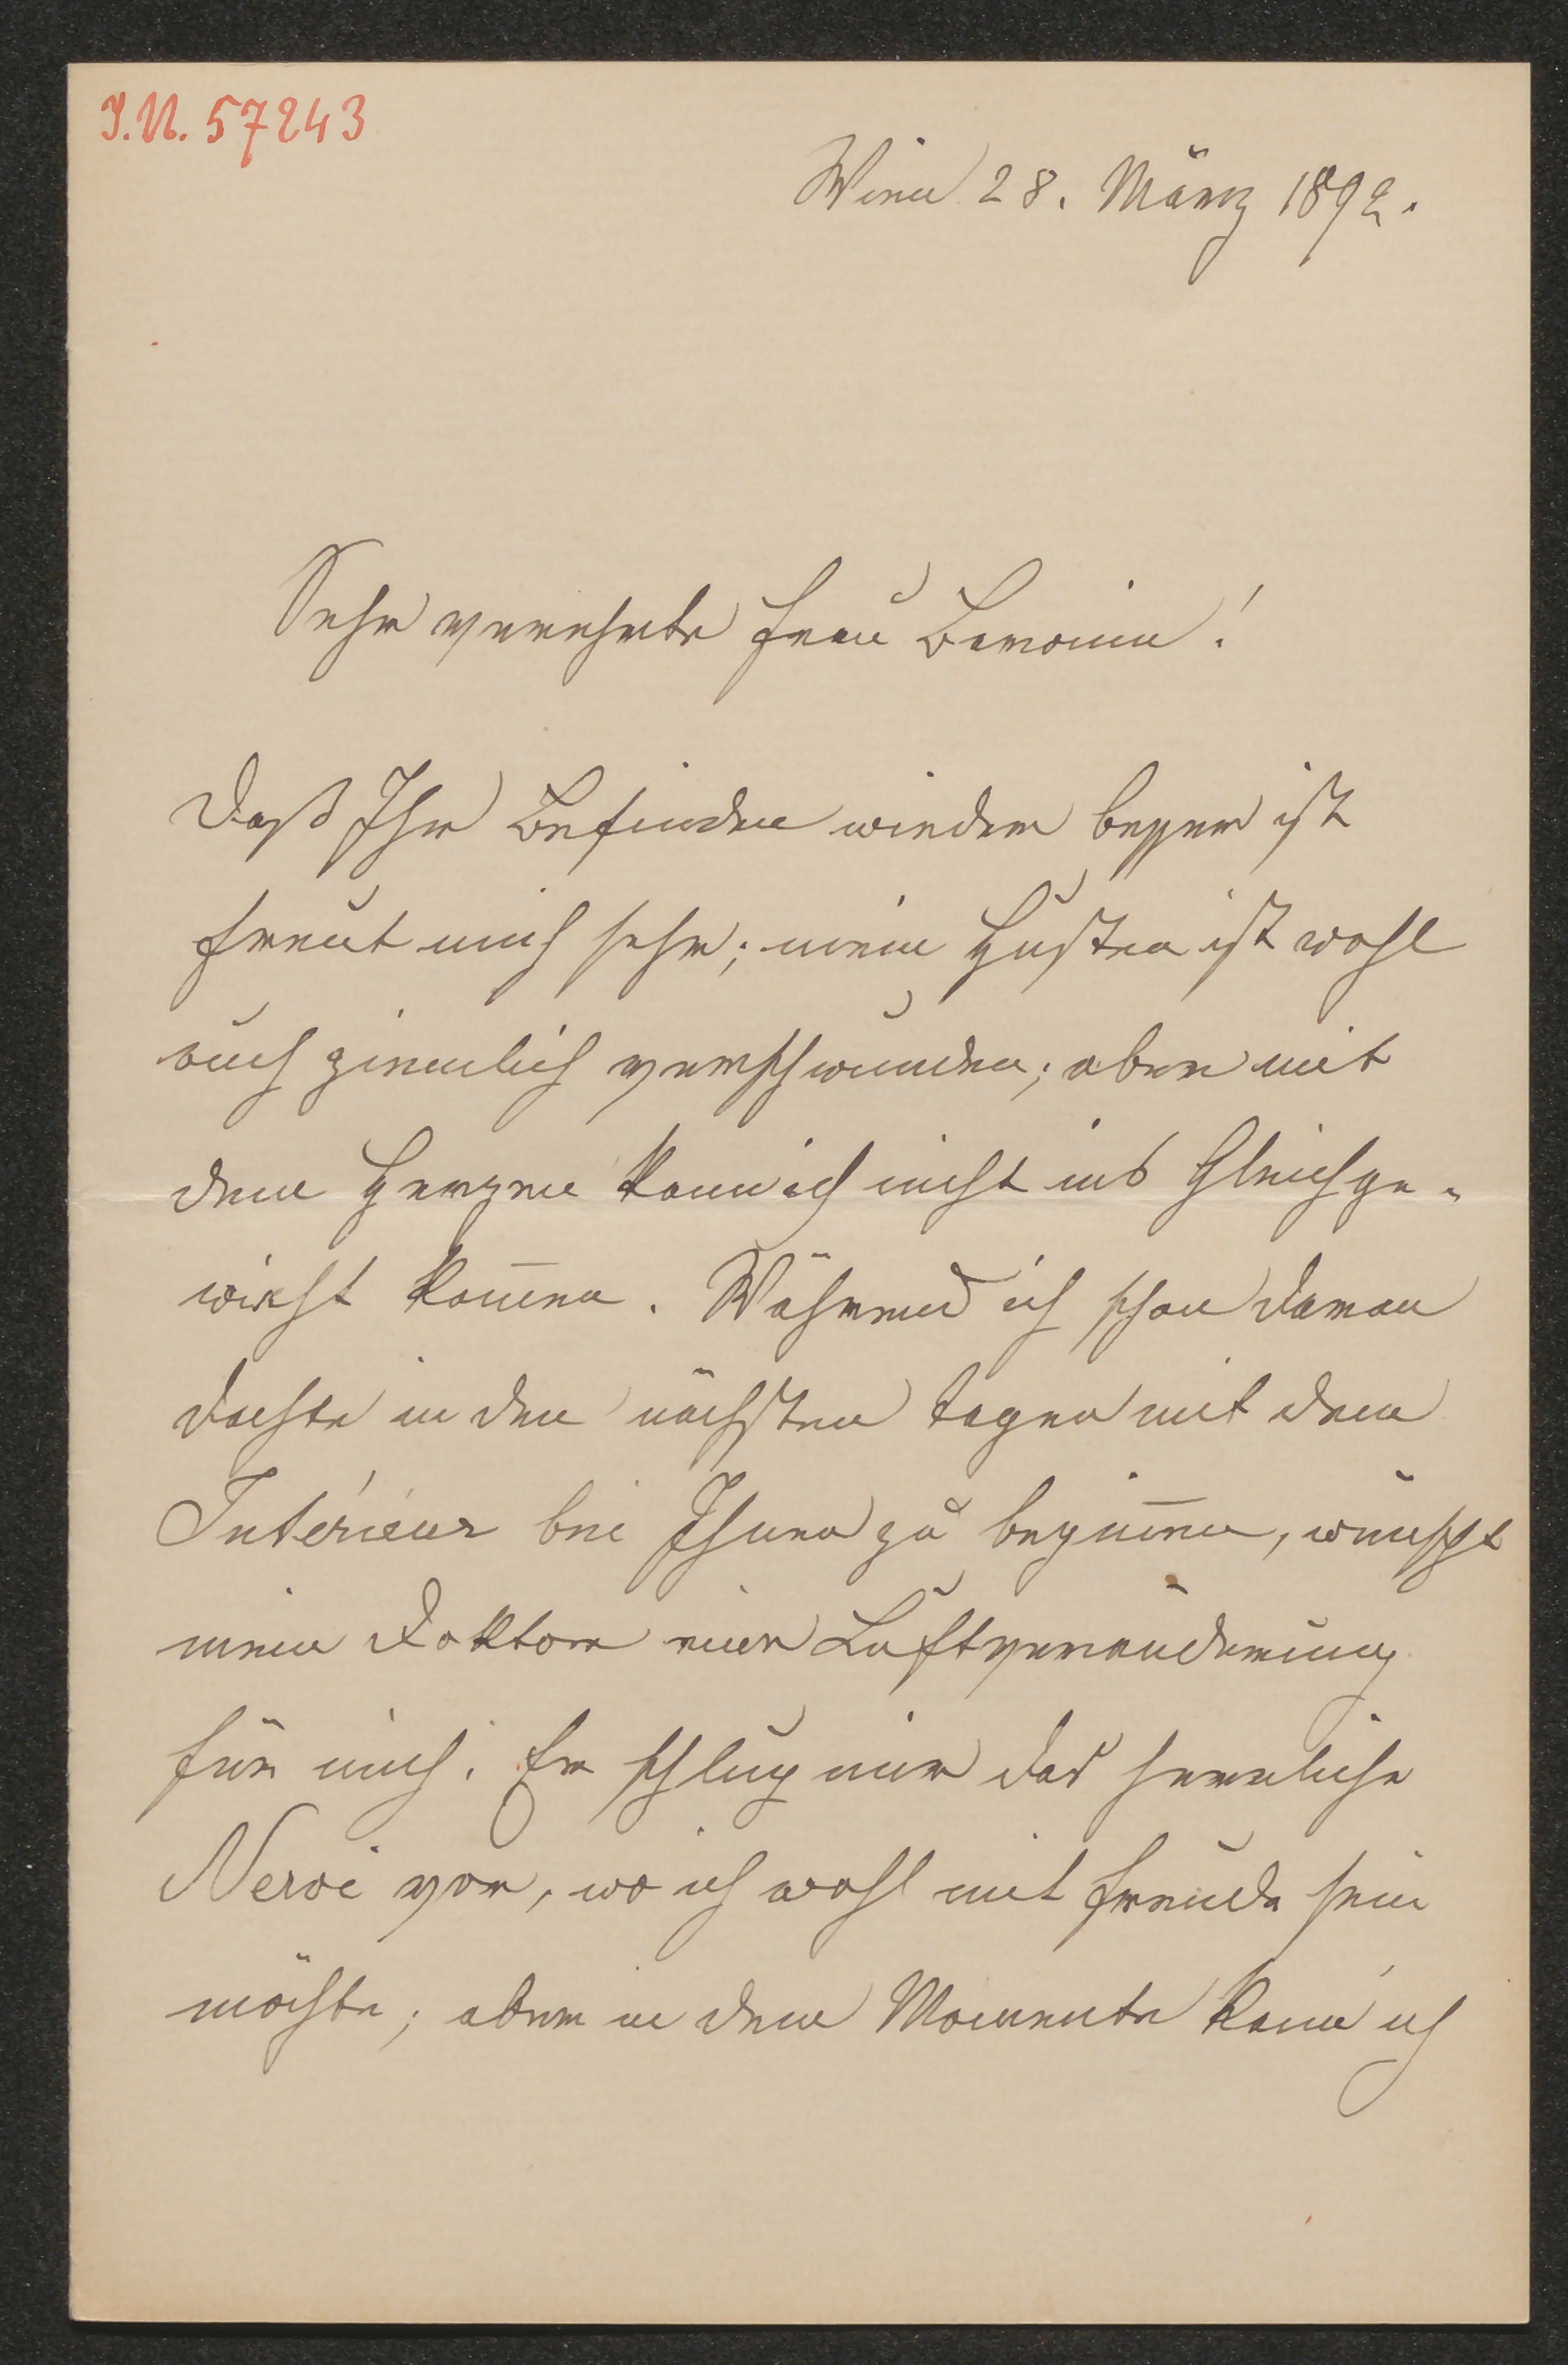 I.N. 57243
Wien 28. März 1892.
Sehr verehrte Frau Baronin!
Daß Ihr Befinden wieder besser ist
freut mich sehr; mein Husten ist wohl
auch ziemlich verschwunden; aber mit
dem Herzen kann ich nicht ins Gleichge-
wicht kom̄en. Während ich schon daran
dachte in den nächsten Tagen mit dem
Intérieur bei Ihnen zu begin̄en, wünscht
mein Doktor eine Luftveränderung
für mich. Er schlug mir das herrliche
Nervi vor, wo ich wohl mit Freude sein
möchte; aber in dem Momente kann ich